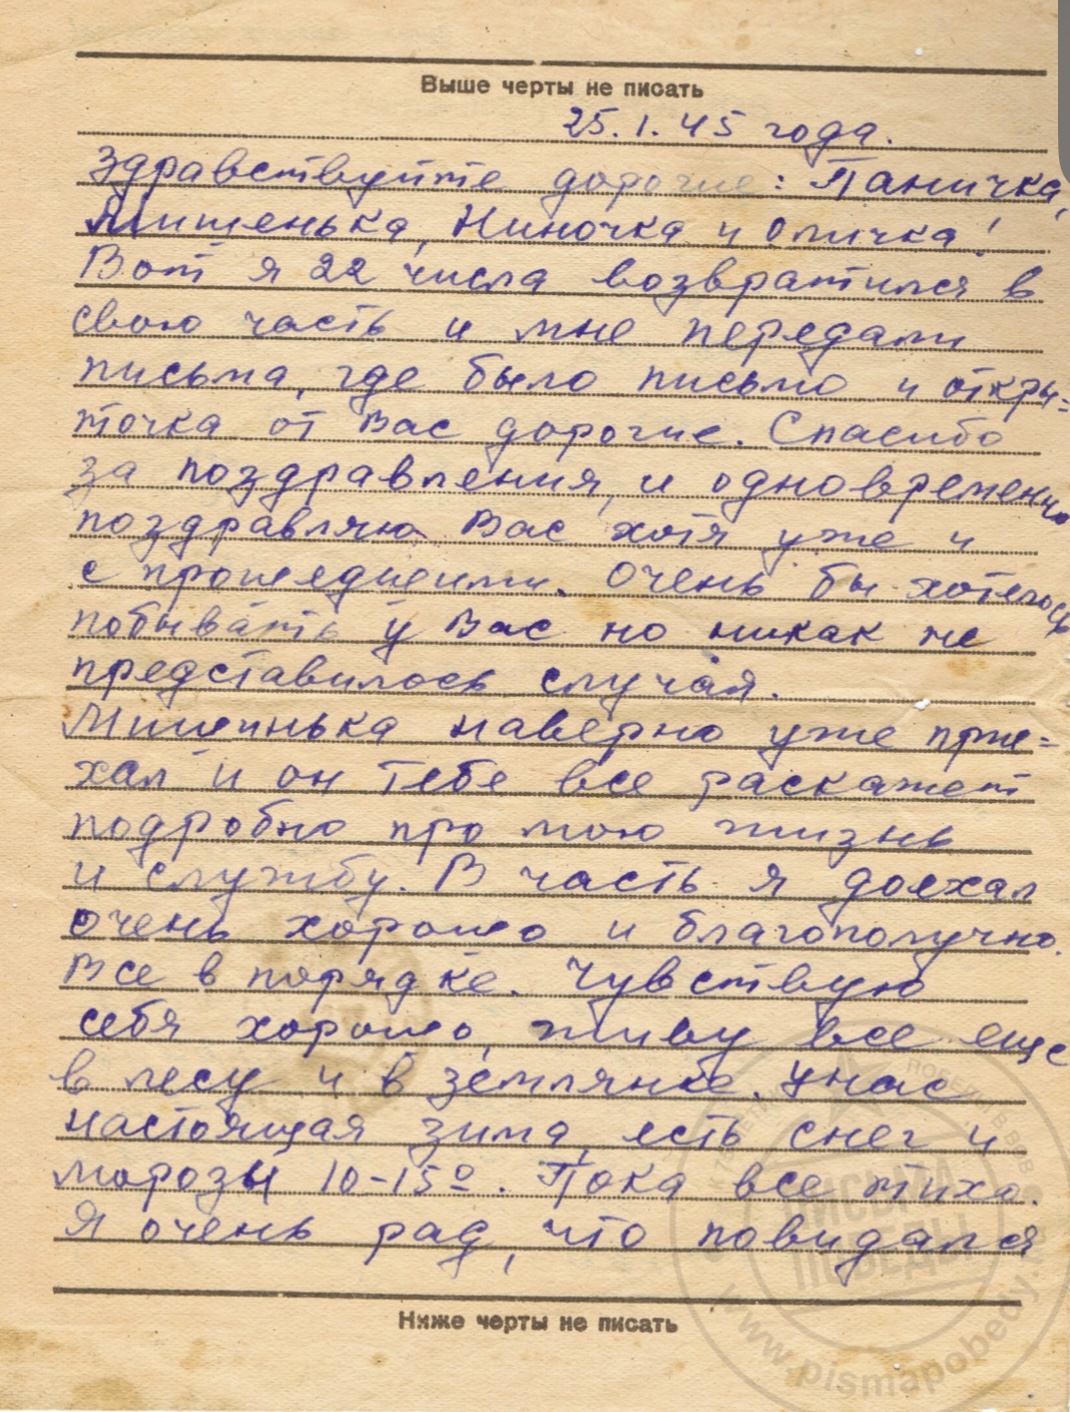 Выше черты не писать
25.1.45 года.
Здравствуйте дорогие: Паничка,
Мишенька, Ниночка и Оличка!
Вот я 22 числа возвратился в
свою часть и мне передали
письма, где было письмо и откры=
точка от Вас дорогие. Спасибо
за поздравления, и одновременно
поздравляю Вас хотя уже и
с прошедшими. Очень бы хотелось
побывать у Вас но никак не
представилось случая.
Мишинька наверно уже прие=
хал и он тебе все раскажет
подробно про мою жизнь
и службу. В часть я доехал
очень хорошо и благополучно.
Все в порядке. Чувствую
себя хорошо, живу все еще
в лесу и в землянке. У нас
настоящая зима, есть снег и
морозы 10-15º. Пока все тихо.
Я очень рад, что повидался
Ниже черты не писать
ПИСЬМА
ПОБЕДЫ
www.pismapobedy.